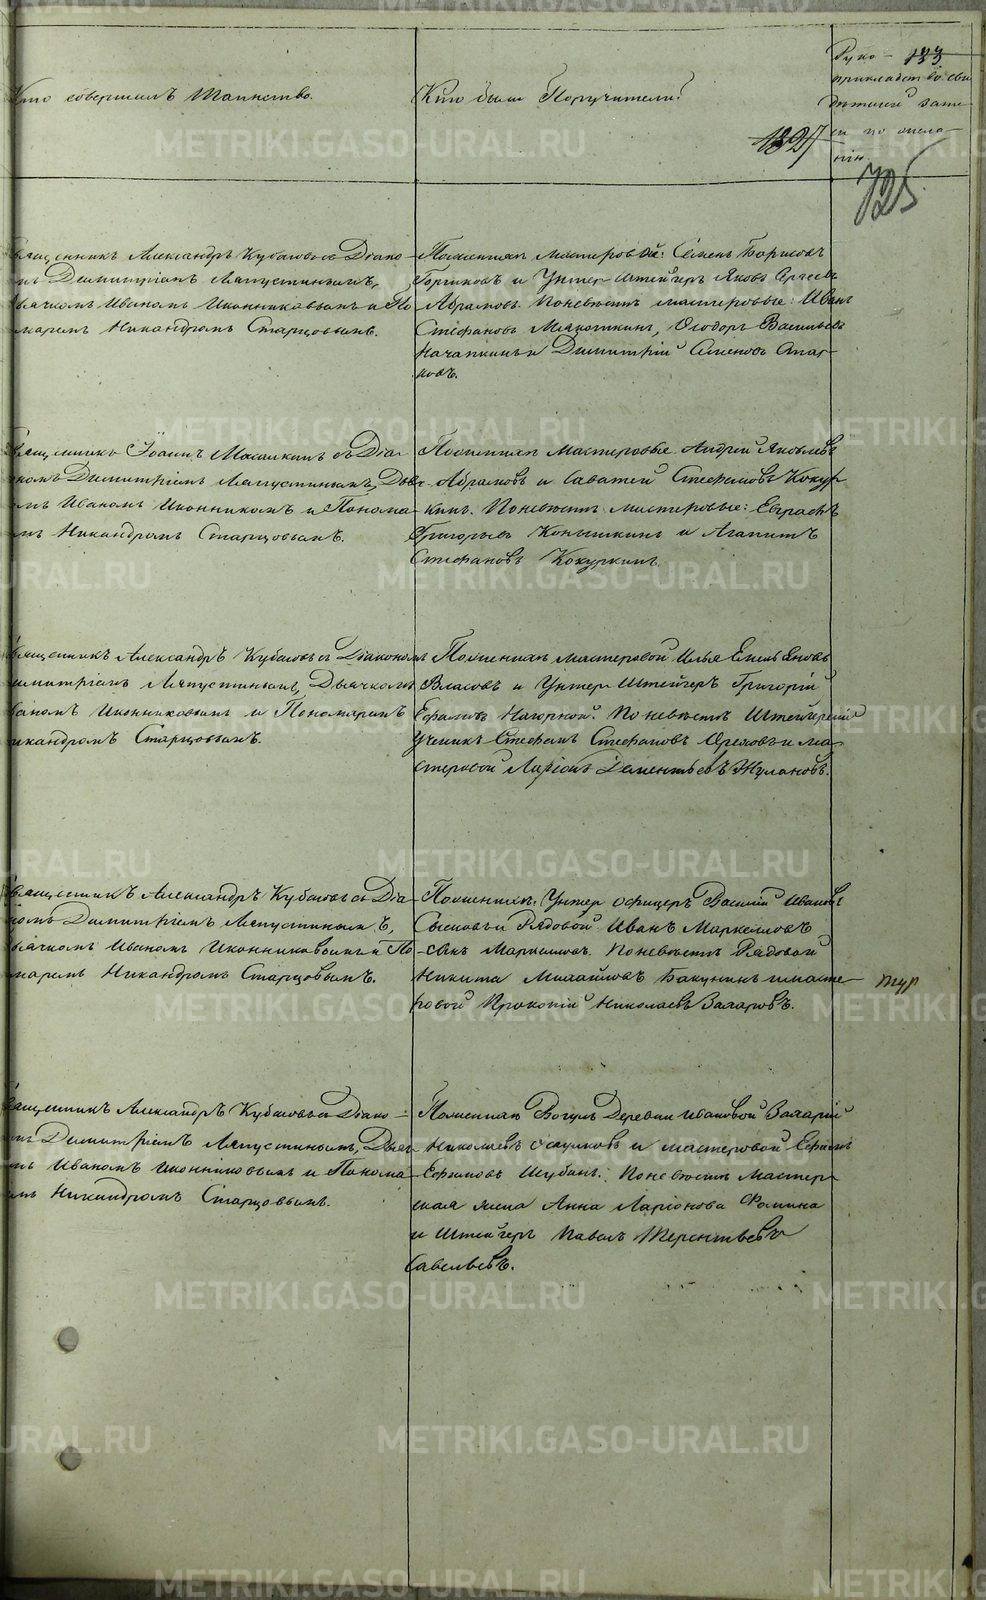 Кто совершалъ Таинство.
Кто были Поручители?
Руко- 123
прикладство сви
дѣтелей запи
си по жела-
нію
1327
125.
Священникъ Александръ Кубасовъ съ Діако-
Димитріемъ Ляпустинымъ,
Иваномъ Иконниковымъ и По
маремъ Никандромъ Старцовымъ.
Поженихѣ мастеровые: Семенъ Борисовъ
и Унтер Штейгеръ Яковъ Сергеевъ
Абрамовъ. Поневѣстѣ мастеровые: Иванъ
Стефановъ Мякоткинъ, Феодоръ Васильевъ
Качапкинъ и Димитрій Семеновъ
ковъ.
Священникъ Іоаннъ съ Діа-
кономъ Димитріемъ Ляпустинымъ, Дья
Иваномъ Иконниковъ и Понома
Никандромъ Старцовымъ.
Поженихѣ Мастеровые Андрей Яковлевъ
Абрамовъ и Саватей Стефановъ Кокур
кинъ. Поневѣстѣ мастеровые: Евграфъ
Григорьевъ Конышкинъ и Агапитъ
Стефановъ Кокуркинъ.
Священникъ Александръ Кубасовъ съ Діакономъ
Димитріемъ Ляпустинымъ, Дьячкомъ
Иваномъ Иконниковымъ и Пономаремъ
Никандромъ Старцовымъ.
Поженихѣ мастеровой Илья
Власовъ и Унтер Штейгеръ Григорій
Ефимовъ Нагорной. Поневѣстѣ Штейгерскій
Ученикъ Стефанъ Стефановъ Ореховъ и ма-
стеровой Ларіонъ Дементьевъ Жулановъ.
Священникъ Александръ Кубасовъ съ Діа-
кономъ Димитріемъ Ляпустинымъ,
Дьячкомъ Иваномъ Иконниковымъ и По
маремъ Никандромъ Старцовымъ.
Поженихѣ: Унтер офицеръ Василій Ивановъ
Сысоевъ и Рядовой Иванъ Маркеловъ
Маркеловъ. Поневѣстѣ Рядовой
Никита Михайловъ Бакунинъ и масте-
ровой Прокопій Николаевъ Захаровъ.
Священникъ Александръ Кубасовъ съ Діако-
Димитріемъ Ляпустинымъ, Дьяч
Иваномъ Иконниковымъ и Понома
Никандромъ Старцовымъ.
Поженихѣ Вогулъ Деревни Ивановой Захарій
Николаевъ и мастеровой Ефимъ
Ефимовъ Шубинъ. Поневѣстѣ Мастер-
ская жена Анна Ларіонова Фомина
и Штейгеръ Павелъ Терентьевъ
Савельевъ.
METRIKI.GASO-URAL.RU